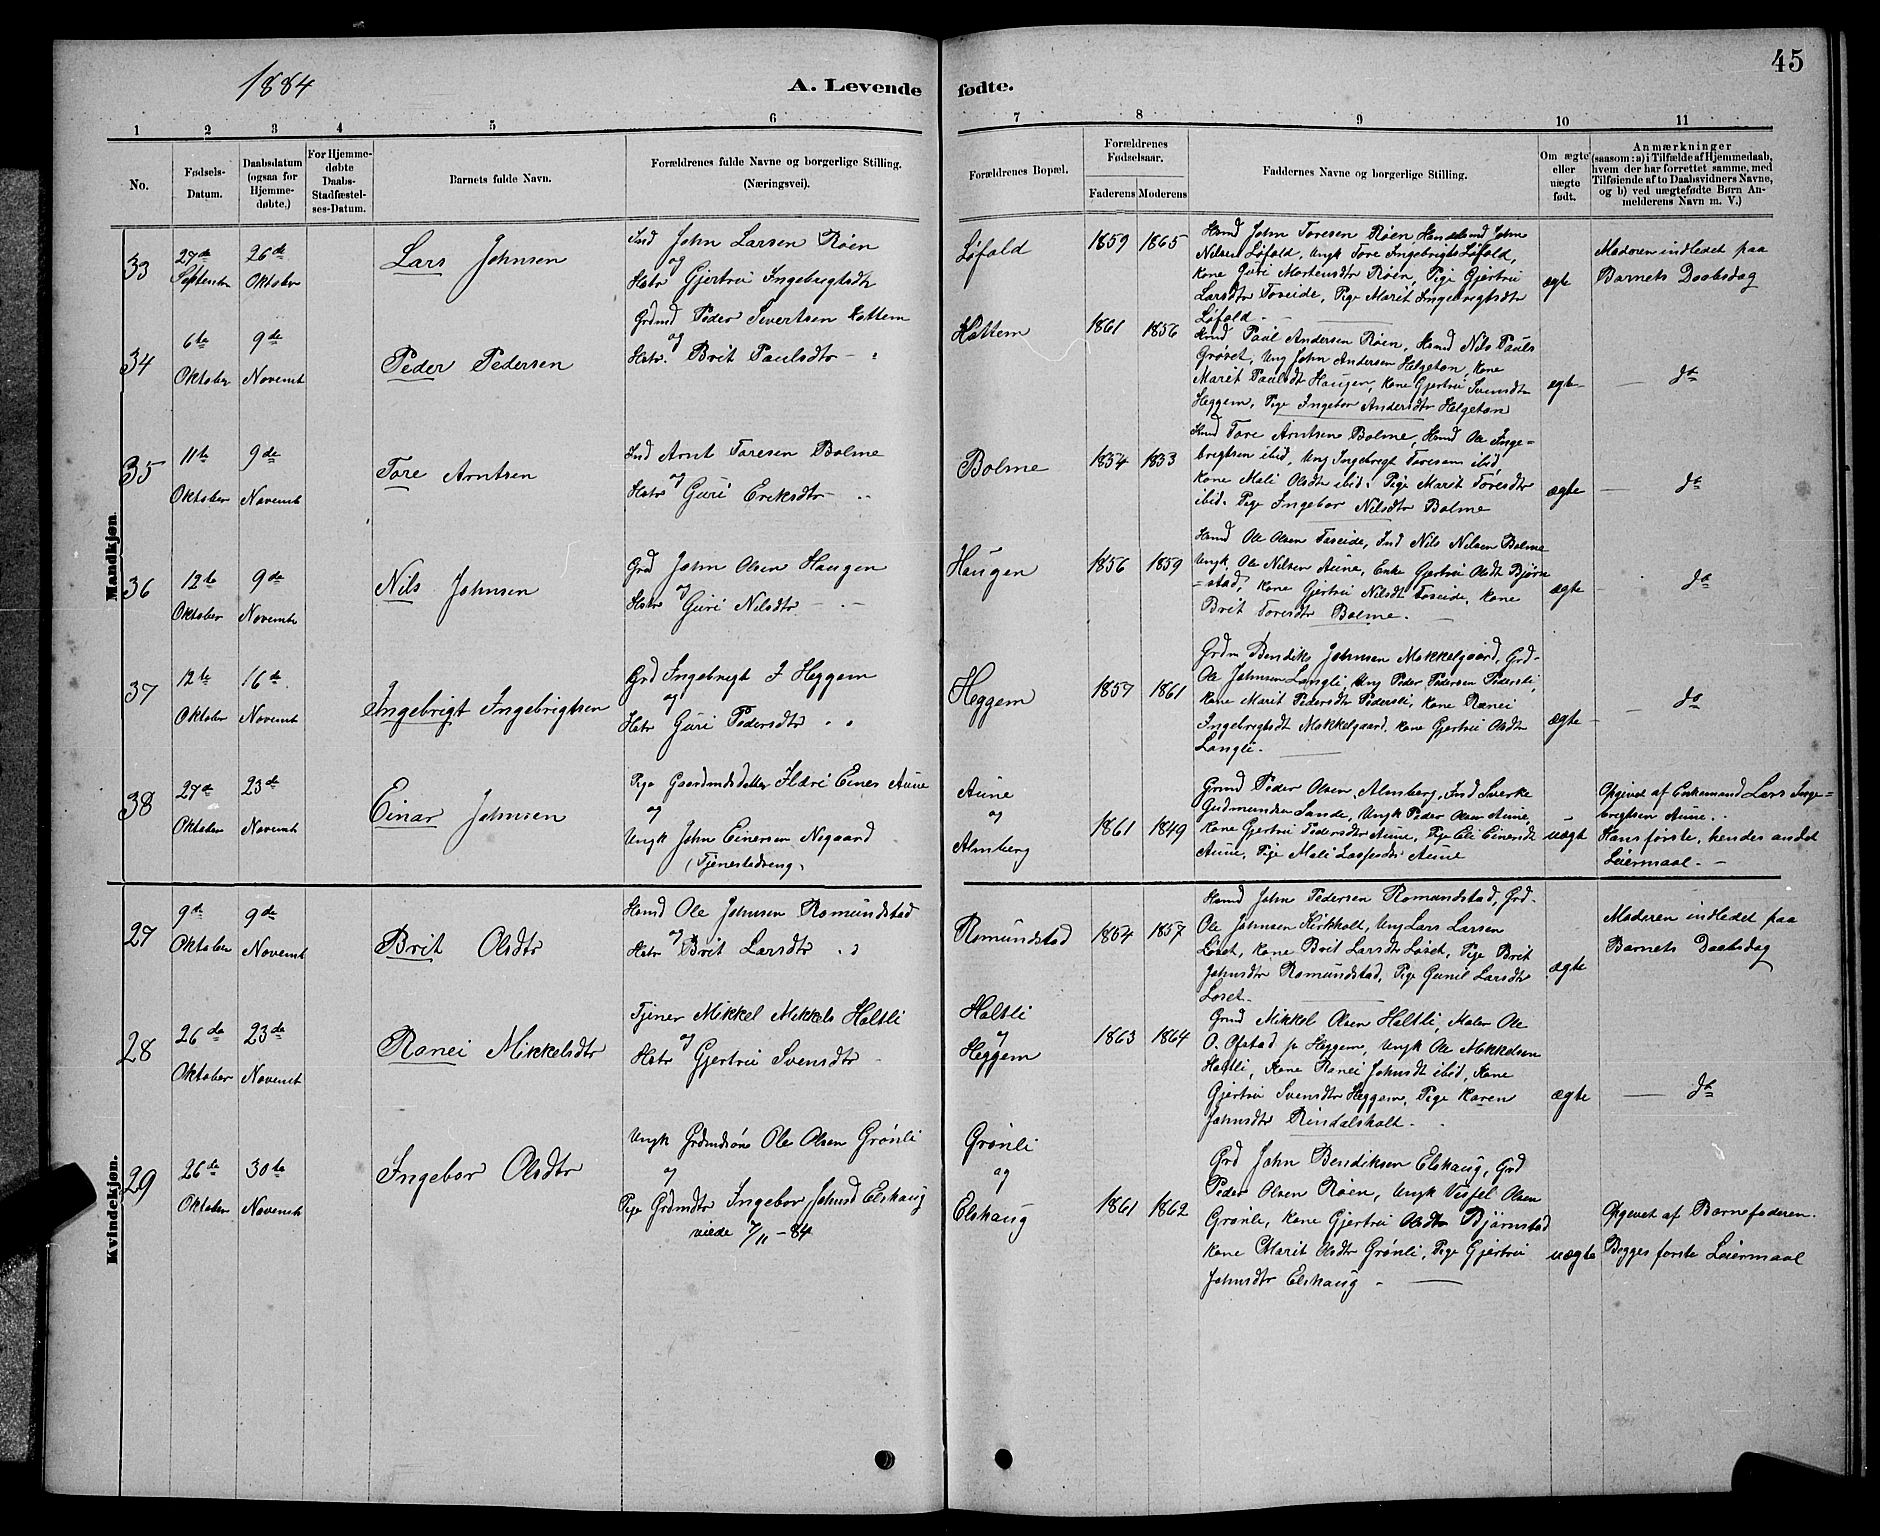 1884
A. Levende fødte.
45
1 2 3 4 5 6 7 8 9 10 11
No.
Fødsels-Datum.
Daabsdatum (ogsaa for Hjemme-døbte.)
For Hjemme-døbte Daabs-Stadfæstel-ses-Datum.
Barnets fulde Navn.
Forældrenes fulde Navne og borgerlige Stilling.
(Næringsvei).
Forældrenes Bopæl.
Forældrenes Fødselsaar.
Faderens Moderens
Faddernes Navne og borgerlige Stilling.
Om ægte eller uægte født.
Anmærkninger
(saasom: a) i Tilfælde af Hjemmedaab,
hvem der har forrettet samme, med
Tilføiende af to Daabsvidners Navne,
og b) ved uægtefødte Børn An-
melderens Navn m. V.)
Mandkjøn.
33
27de Septembr
26de Oktober
Lars Johnsen
Ind John Larsen Röen
og
Hstr Gjertrui Ingebrigtsdtr
Löfald
1859 1865
Hmd John Toresen Röen Handelsmd John
Nilsen Löfald, Ungk Tore Ingebrigts Löfald,
Kone Guri Mortensdtr Röen, Pige Gjertrui
Larsdtr Toreide, Pige Marit Ingebrigtsdtr
Löfald.
ægte
Moderen indledet paa
Barnets Daabsdag
34
6te Oktober
9de Novemb
Peder Pedersen
Grdmd Peder Sivertsen Hattem
og
Hstr. Brit Paulsdtr
Hattem
1861 1856
Hmd Paal Andersen Röen, Hmd Nils Pauls
Grövet, Ung John Andersen Helgeton, Kone
Marit Paulsdt Haugen, Kone Gjertrui Svendtr
Heggem, Pige Ingebor Andersdtr Helgeton
ægte
do
35
11te Oktober
9de Novemb
Tore Arntsen
Ind Arnt Toresen Bolme
og
Hstr Guri Eriksdtr
Bolme
1854 1853
Hmd Tore Arntsen Bolme, Hmd Ole Inge-
brigtsen ibid, Ung Ingebrigt Toresen ibid,
Kone Mali Olsdt ibid. Pige Marit Toresdtr
ibid. Pige Ingebor Nilsdtr Bolme
ægte
do
36
12te Oktober
9de Novemb
Nils Johnsen
Grd John Olsen Haugen
og
Hstr Guri Nilsdtr
Haugen
1856 1859
Hmd Ole Olsen Toreide, Ind Nils Nilsen Bolme
Ungk. Ole Nilsen Aune, Enke Gjertrui Olsdt Bjørn
-stad, Kone Gjertrui Nilsdt Toreide, Kone
Brit Toresdtr Bolme.
ægte
do
37
12te Oktober
16de Novemb
Ingebrigt Ingebrigtsen
Grd Ingebrigt I Heggem
og
Hstr Guri Pedersdtr
Heggem
1857 1861
Grdm Bendik Johnsen Mokkelgaard, Grd-
Ole Johnsen Langli, Ung Peder Pedersen Pedersli,
Kone Marit Pedersdt Pedersli, Kone Ranei
Ingebrigtsdt Mokkelgaard, Kone Gjertrui Olsdtr
Langli.
ægte
do
38
27de Oktober
23de Novemb
Einar Johnsen
Pige Gaardmdsdatter Ildri Eines Aune
og
Ungk John Einersen Nigaard
(Tjenestedreng)
Aune
og
Almberg
1861 1849
Grmd Peder Olsen Almberg, Ind Sverke
Gudmundsen Sande, Ungk Peder Olsen Aune,
Kone Gjertrui Pedersdtr Aune, Pige Eli Einersdt
Aune, Pige Mali Aune
uægte
Opgivet af Enkemand Lars Inge-
brigtsen Aune.
Hans første, hendes andet
Leiermaal.
Kvindekjøn.
27
9de Oktober
9de Novemb
Brit Olsdtr
Hsmd Ole Johnsen Romundstad
og
Hstr Brit Larsdtr
Romundstad
1854 1857
Hsmd John Pedersen Romundstad, Grd-
Ole Johnsen Kirkholt, Ung Lars Larsen
Löset, Kone Brit Larsdt Löset, Pige Brit
Johnsdtr Romundstad, Pige Gunil Larsdtr
Löset.
ægte
Moderen indledet paa
Barnets Daabsdag
28
26de Oktober
23de Novemb
Ranei Mikkelsdtr
Tjener Mikkel Mikkels Haltli
og
Hstr Gjertrui Svensdtr
Haltli
og
Heggem
1863 1864
Grmd Mikkel Olsen Haltli, Maler Ole
O. Ofstad p Heggem, Ungk Ole Mikkelsen
Haltli, Kone Ranei Johnsdt ibid, Kone
Gjertrui Svensdtr Heggem, Pige Karen
Johnsdtr Rindalsholt.
ægte
do
29
26de Oktober
30te Novemb
Ingebor Olsdtr
Ungk Grdmdsön Ole Olsen Grönli
og
Pige Grdmdtr Ingebor Johnsd Elshaug
viede 7/11-84
Grönli
og
Elshaug
1861 1862
Grd John Bendiksen Elshaug, Grd
Peder Olsen Röen, Ungk Olsen
Grönli, Kone Gjertrui Olsdtr Bjørnstad
Kone Marit Olsdtr Grönli, Pige Gjertrui
Johnsdtr Elshaug
uægte
Opgivet af Barnefaderen.
Begges første Leiermaal